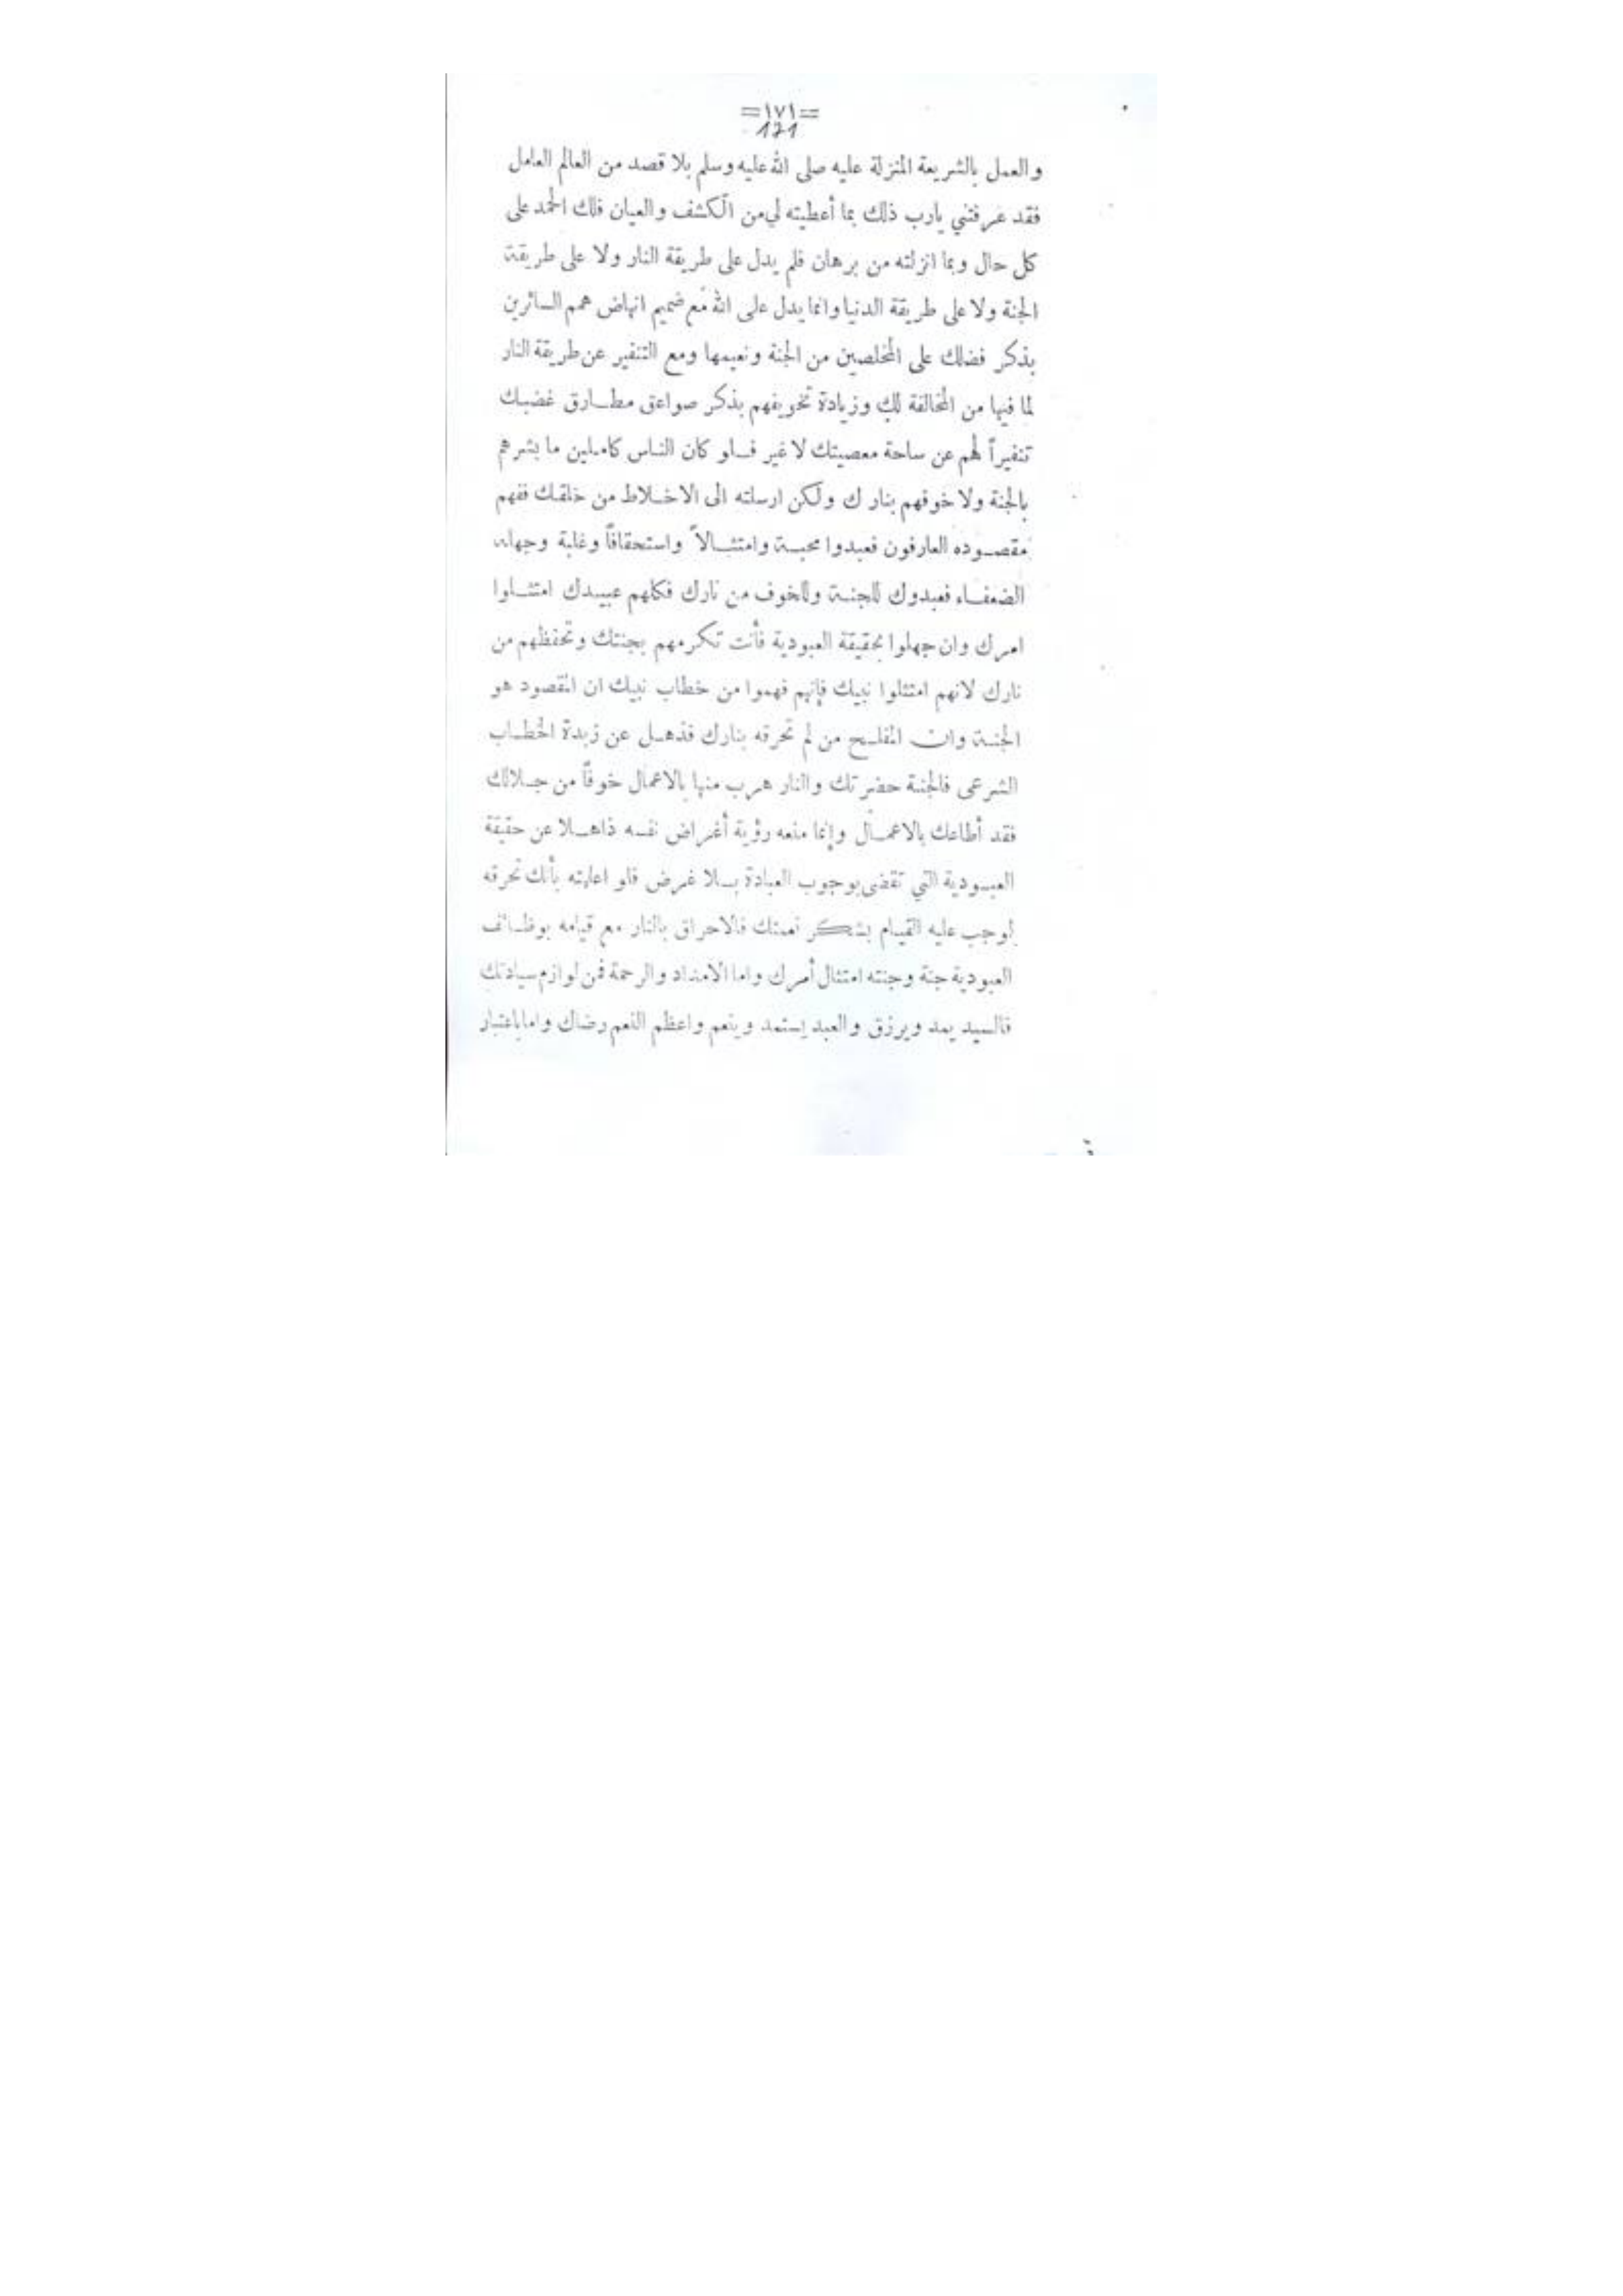 =١٧١=
171
والعمل بالشريعة المنزلة عليه صلى الله عليه وسلم بلا قصد من العالم العامل
فقد عرفتني يارب ذلك بما أعطيته لي من الكشف والعيان فلك الحمد على
كل حال وبما انزلته من برهان فلم يدل على طريقة النار ولا على طريقة
الجنة ولا على طريقة الدنيا وانما يدل على الله مع ضميم انهاض همم السائرين
بذكر فضلك على المخلصين من الجنة ونعيمها ومع التنفير عن طريقة النار
لما فيها من المخالفة لك وزيادة تخويفهم بذكر صواعق مطارق غضبك
تنفيراً لهم عن ساحة معصيتك لا غير فلو كان الناس كاملين ما بشرهم
بالجنة ولا خوفهم بنارك ولكن ارسلته الى الاخلاط من خلقك ففهم
مقصوده العارفون فعبدوا محبة وامتثالاً واستحقاقاً وغلبة وجهله
الضعفاء فعبدوك للجنة وللخوف من نارك فكلهم عبيدك امتثلوا
امرك وان جهلوا بحقيقة العبودية فأنت تكرمهم بجنتك وتحفظهم من
نارك لانهم امتثلوا نبيك فإنهم فهموا من خطاب نبيك ان المقصود هو
الجنة وان المفلح من لم تحرقه بنارك فذهل عن زبدة الخطاب
الشرعى فالجنة حضرتك والنار هرب منها بالاعمال خوفاً من جلالك
فقد أطاعك بالاعمال وإنما منعه رؤية أغراض نفسه ذاهلا عن حقيقة
العبودية التي تقضى بوجوب العبادة بلا غرض فلو اعلمته بأنك تحرقه
لوجب عليه القيام بشكر نعمتك فالاحراق بالنار مع قيامه بوظائف
العبودية جنة وجنته امتثال أمرك واما الامداد والرحمة فمن لوازم سيادتك
فالسيد يمد ويرزق والعبد يستمد وينعم واعظم النعم رضاك واما باعتبار